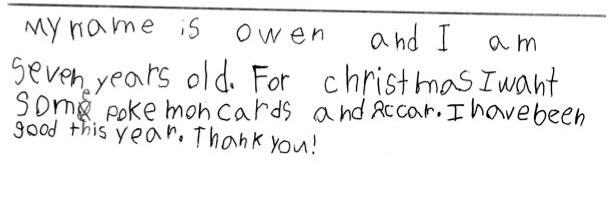 My name is owen and I am
Seven years old. For christmas I want
Some pokemon cards and RC car. I have been
good this year. Thank you!